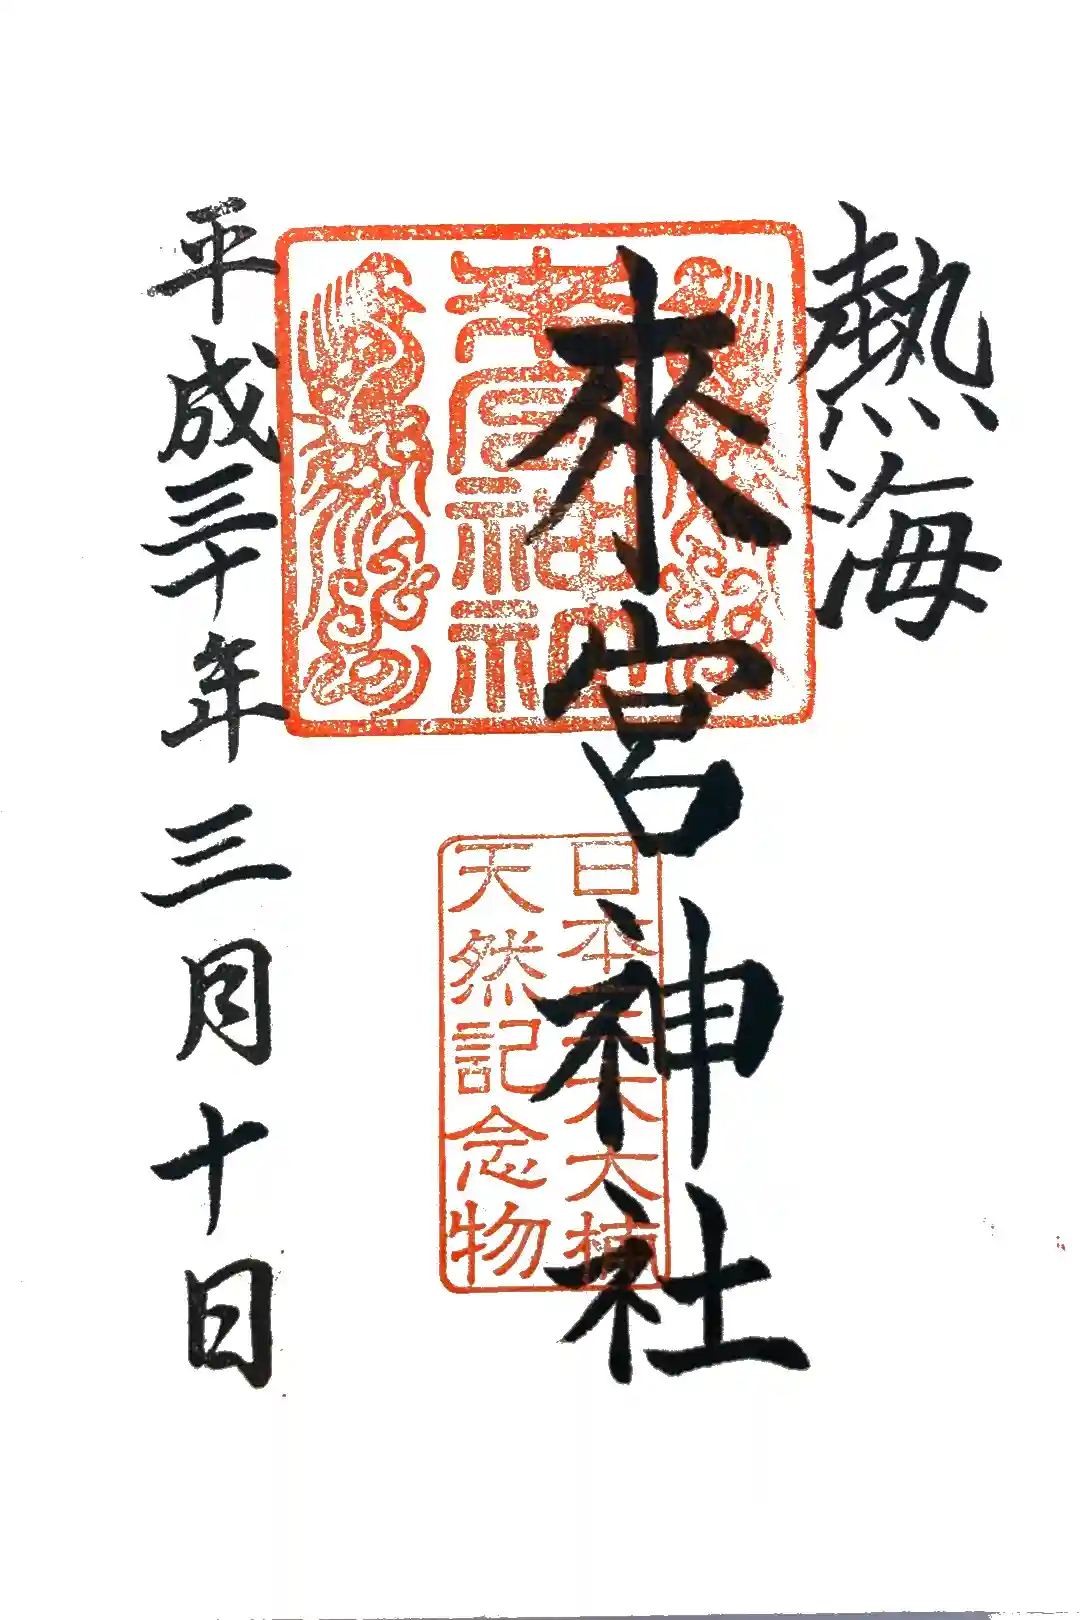 熱海
來宮神社
日本三大大楠
天然記念物
平成三十年三月十日